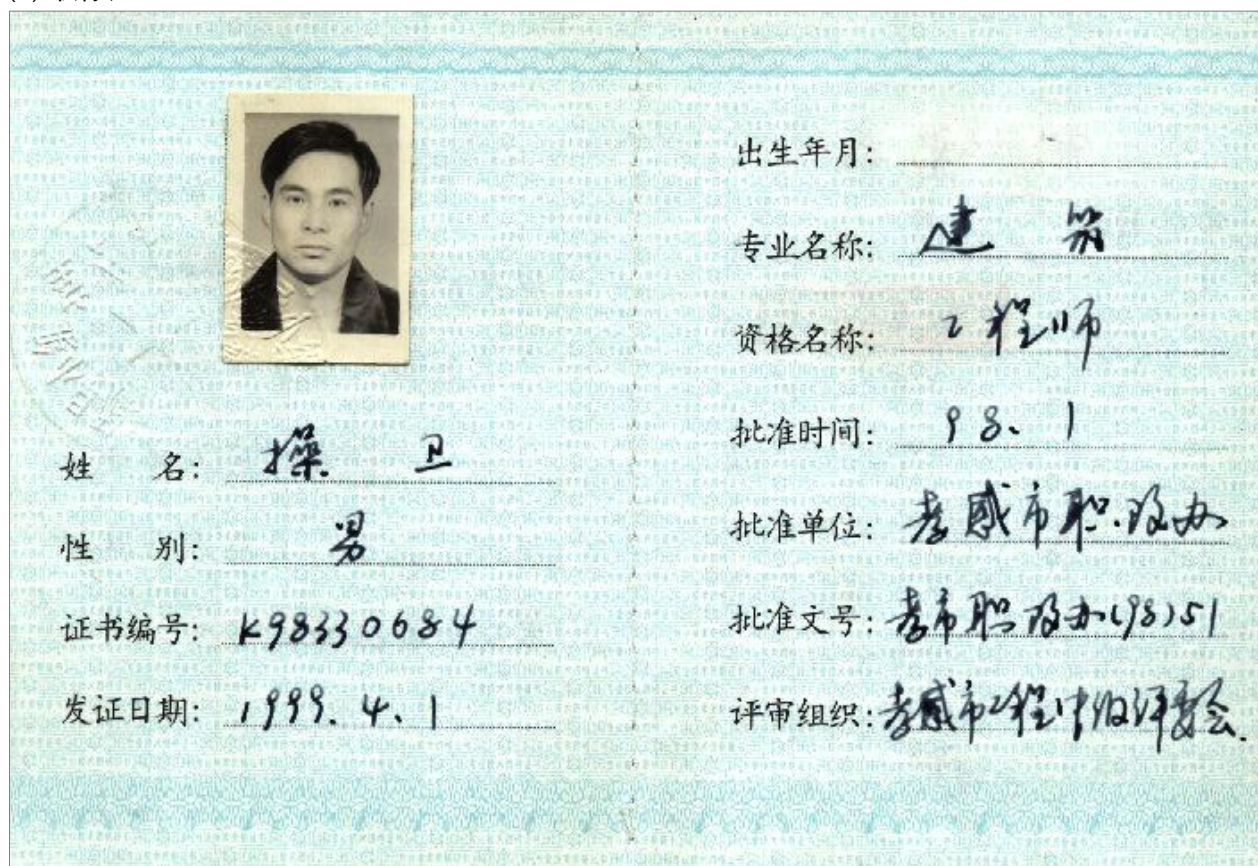 姓 名: 操 卫
性 别: 男
证书编号: K98330684
发证日期: 1999.4.1
出生年月:
专业名称: 建筑
资格名称: 工程师
批准时间: 98.1
批准单位: 孝感市职改办
批准文号: 孝市职改办(98)51
评审组织: 孝感市工程中级评委会.